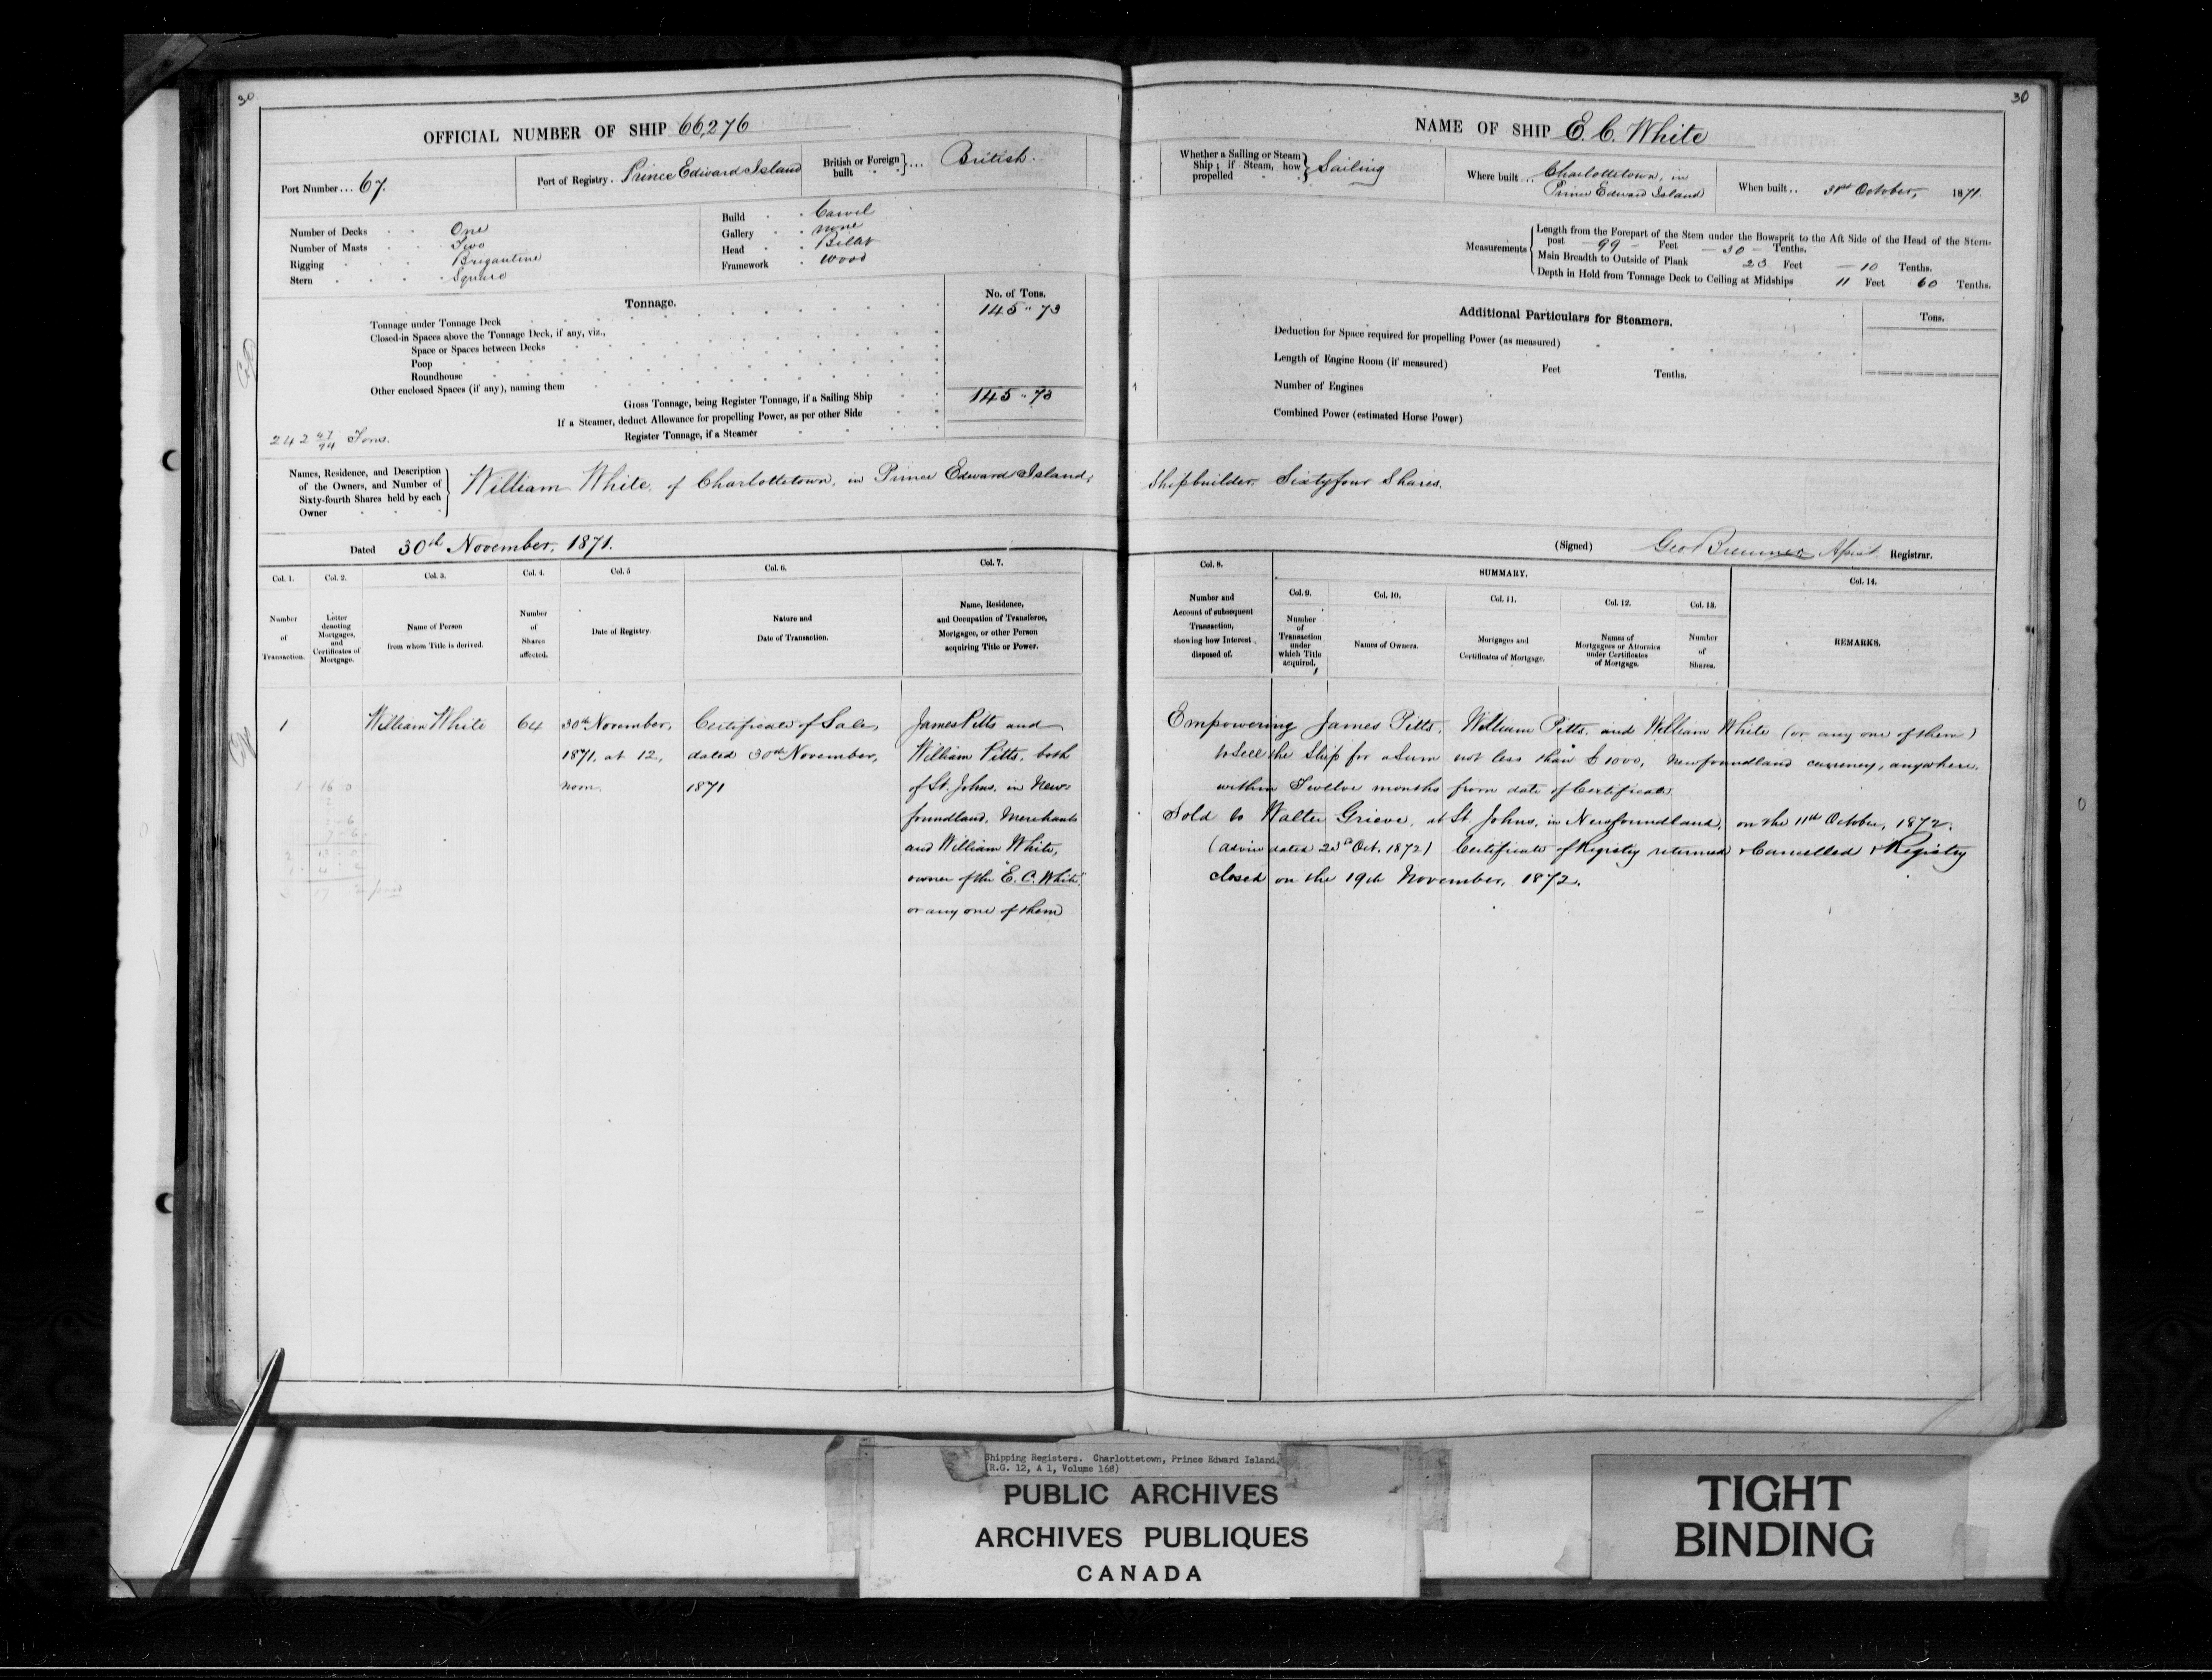 30
OFFICIAL NUMBER OF SHIP 66,276
Port Number... 67.
Port of Registry. Prince Edward Island
British or Foreign built } ... British.
Number of Decks One
Number of Masts Two
Rigging Brigantine
Stern Square
Build Carvel
Gallery none
Head Billet
Framework Wood
Tonnage.
No. of Tons.
Tonnage under Tonnage Deck 145 " 73
Closed-in Spaces above the Tonnage Deck, if any, viz.,
Space or Spaces between Decks
Poop
Roundhouse
Other enclosed Spaces (if any), naming them
Gross Tonnage, being Register Tonnage, if a Sailing Ship 145 " 73
If a Steamer, deduct Allowance for propelling Power, as per other Side
Register Tonnage, if a Steamer
242 47/94 Tons.
Names, Residence, and Description
of the Owners, and Number of
Sixty-fourth Shares held by each
Owner
William White, of Charlottetown, in Prince Edward Island,
Dated 30th November, 1871.
Col. 1. Col. 2. Col. 3. Col. 4. Col. 5 Col. 6. Col. 7.
Number of Transaction.
Letter denoting Mortgages, and Certificates of Mortgage.
Name of Person from whom Title is derived.
Number of Shares affected.
Date of Registry.
Nature and Date of Transaction.
Name, Residence, and Occupation of Transferee, Mortgagee, or other Person acquiring Title or Power.
1
William White
64
30th November,
1871, at 12,
noon.
Certificate of Sale,
dated 30th November,
1871
James Pitts and
William Pitts, both
of St. Johns, in New=
foundland, Merchants
and William White,
owner of the "E. C. White"
or any one of them
30
NAME OF SHIP E. C. White
Whether a Sailing or Steam Ship; if Steam, how propelled } Sailing
Where built... Charlottetown, in
Prince Edward Island
When built.. 31st October, 1871.
Measurements
Length from the Forepart of the Stem under the Bowsprit to the Aft Side of the Head of the Stern-
post - 99 - Feet - 30 - Tenths.
Main Breadth to Outside of Plank 23 Feet - 10 Tenths.
Depth in Hold from Tonnage Deck to Ceiling at Midships 11 Feet 60 Tenths.
Additional Particulars for Steamers.
Tons.
Deduction for Space required for propelling Power (as measured)
Length of Engine Room (if measured) Feet Tenths.
Number of Engines
Combined Power (estimated Horse Power)
Shipbuilder. Sixtyfour Shares.
(Signed) Geo Registrar.
Col. 8.
SUMMARY.
Col. 14.
Col. 9. Col. 10. Col. 11. Col. 12. Col. 13.
Number and Account of subsequent Transaction, showing how Interest disposed of.
Number of Transaction under which Title acquired.
Names of Owners.
Mortgages and Certificates of Mortgage.
Names of Mortgagees or Attornies under Certificates of Mortgage.
Number of Shares.
REMARKS.
Empowering James Pitts, William Pitts, and William White (or any one of them)
to sell the Ship for a Sum not less than 1000, Newfoundland currency, anywhere,
within Twelve months from date of Certificate
Sold to Walter Grieve, at St. Johns, in Newfoundland, on the 11th October, 1872.
(advice dated 23rd Oct. 1872) Certificate of Registry returned & Cancelled & Registry
closed on the 19th November, 1872.
Shipping Registers. Charlottetown, Prince Edward Island.
(R.G. 12, A 1, Volume 168)
PUBLIC ARCHIVES
ARCHIVES PUBLIQUES
CANADA
TIGHT
BINDING